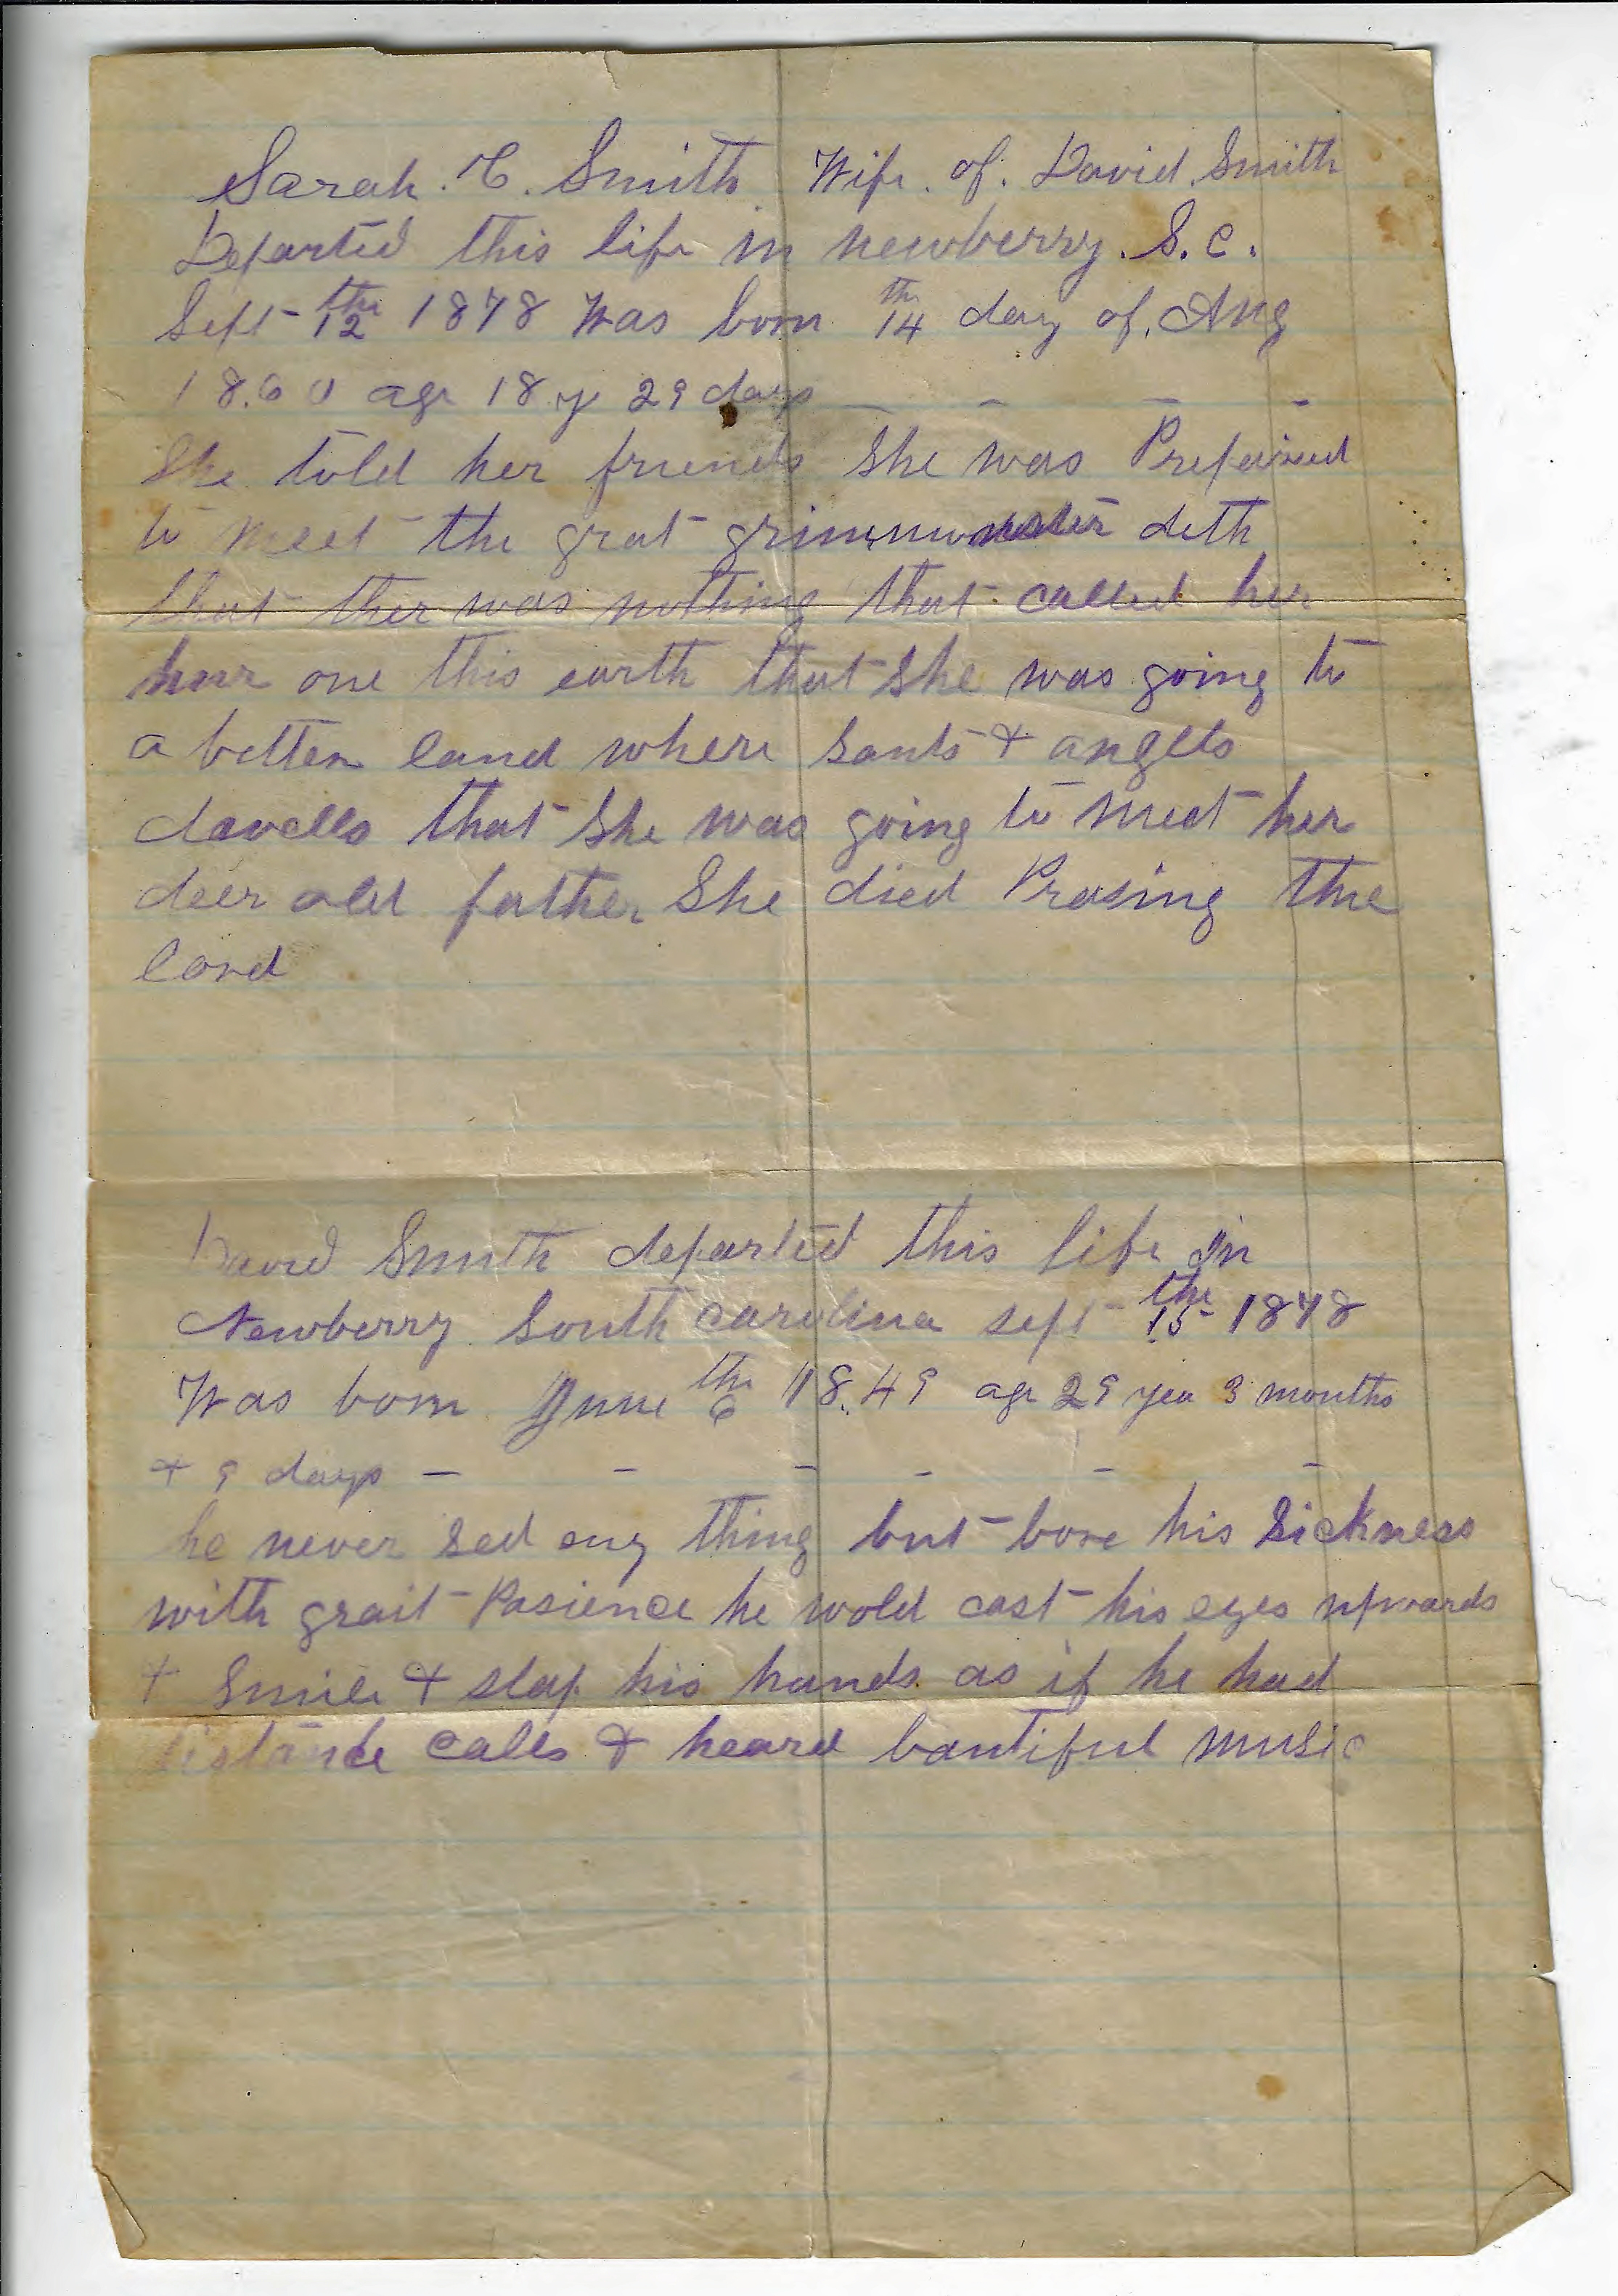 Sarah. C. Smith Wife. of. David. Smith
Departed this life in newberry. S. C.
Sept 12th 1878 Was born 14th day of. Aug
18.60 age 18 y 29 days — — — —
She told her friends she was Prepaired
to meet the grat grimmonster deth
that ther was nothing that called her
hear one this earth that she was going to
a better land where sants & angels
dwells that she was going to meet her
deer old father She died Prasing the
lord
David Smith departed this life in
Newberry South carolina sept 15th 1878
Was born June 6th 18.49 age 29 yea 3 months
& 9 days — — — — — —
he never sed eny thing but bore his sickness
with grait Pasience he wold cast his eyes upwards
& Smile & slap his hands as if he had
distance calls & heard bautiful music